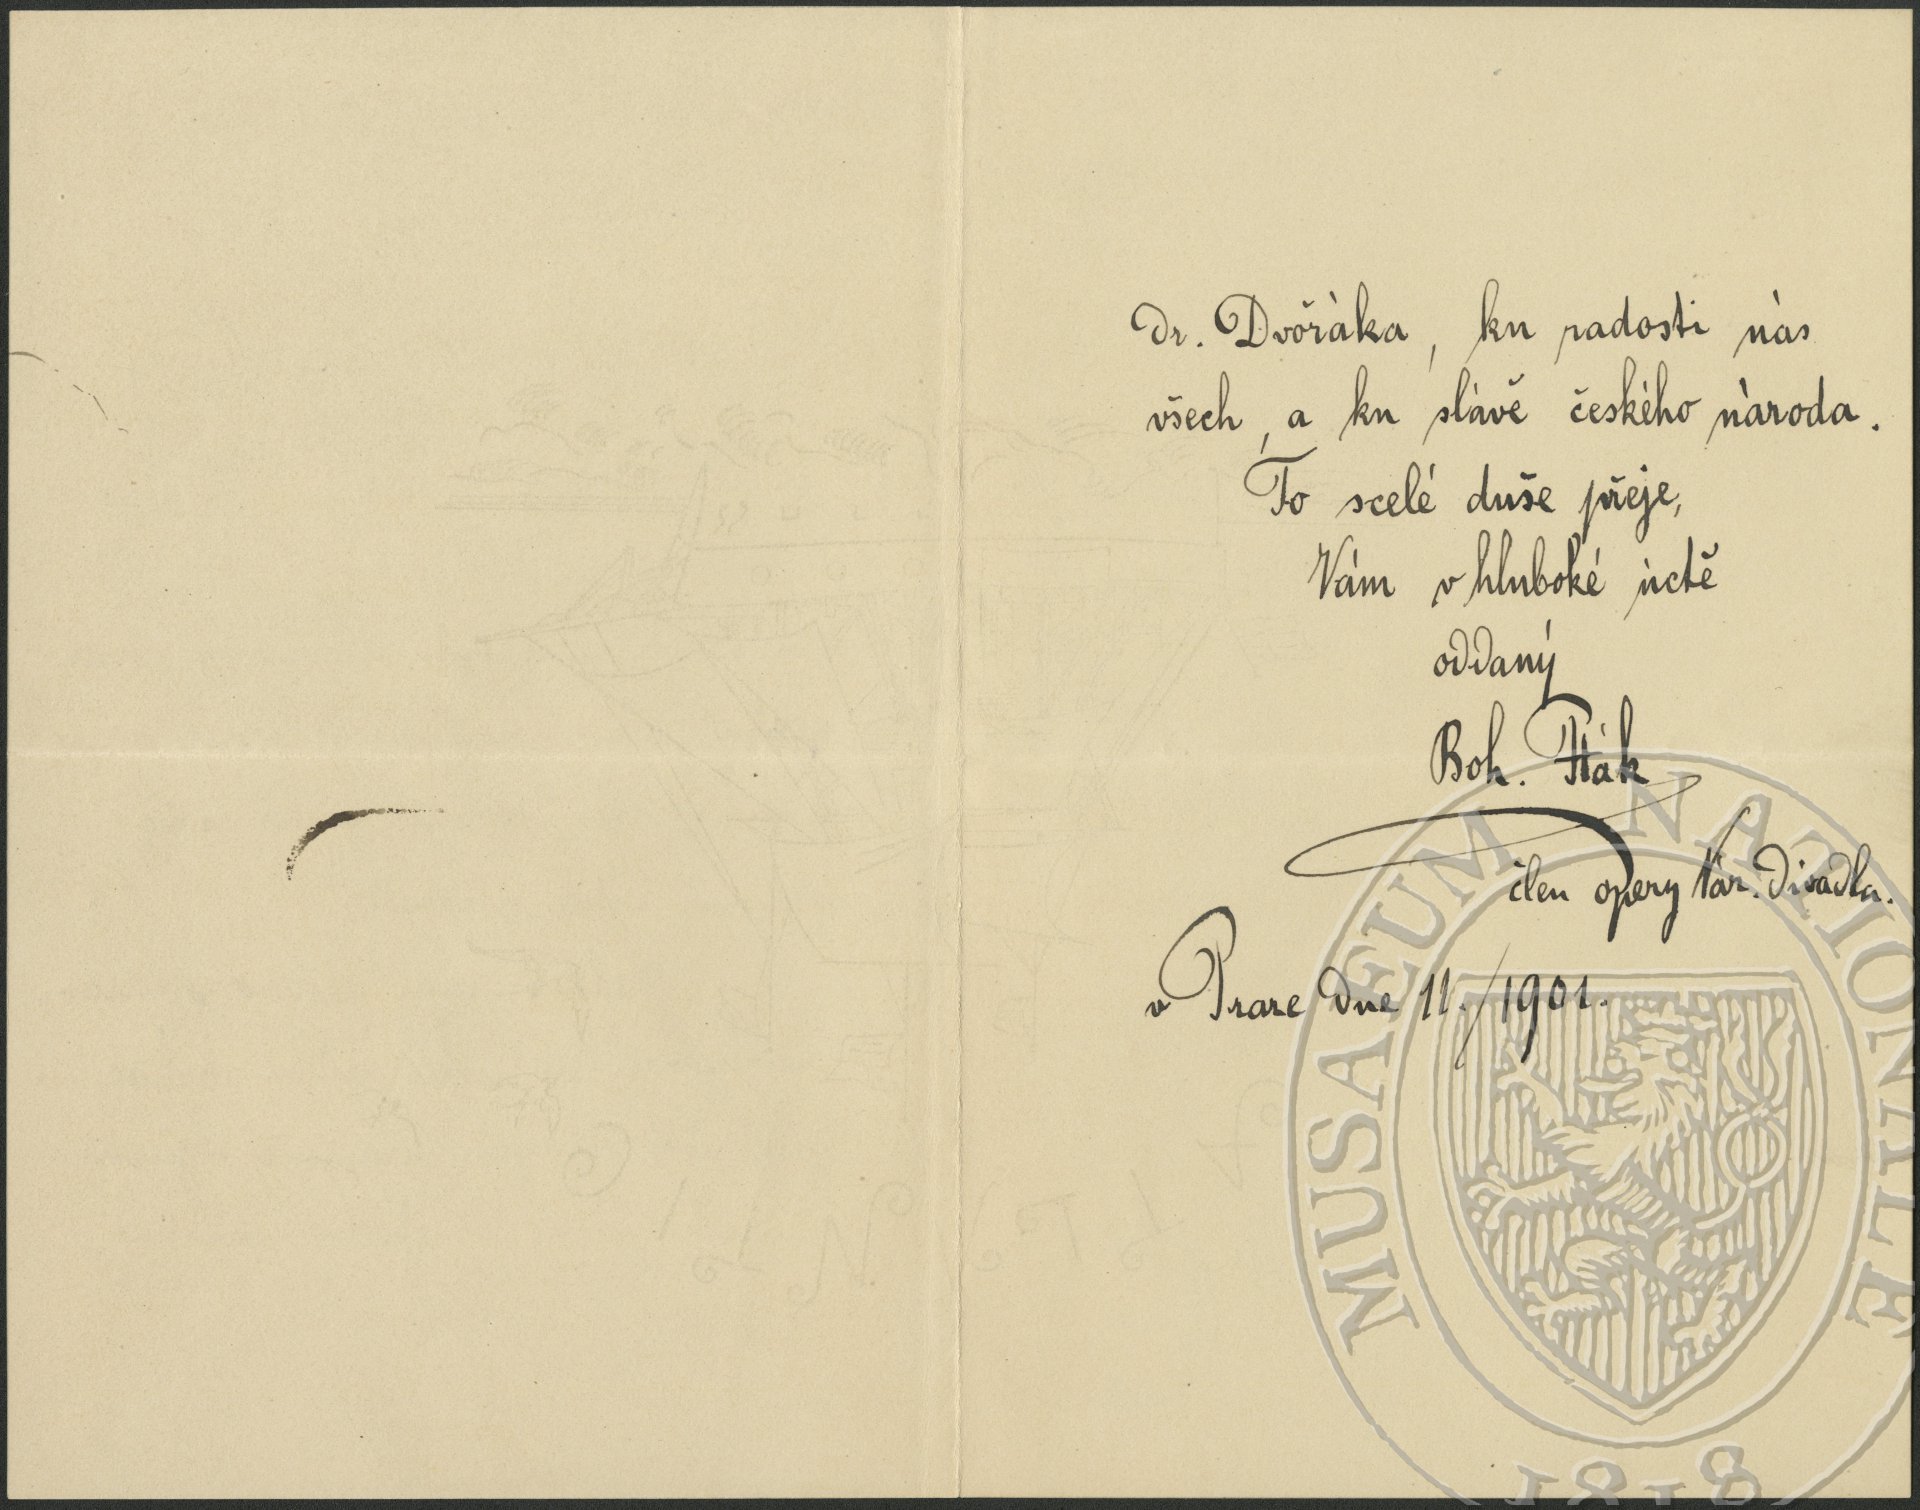 Dr. Dvořáka, ku radosti nás
všech, a ku slávě českého národa.
To scelé duše přeje,
Vám v hluboké úctě
oddaný
Boh. Pták
člen opery Nár. divadla.
v Praze dne 11./1901.
MUSAEUM NATIONALE
1818